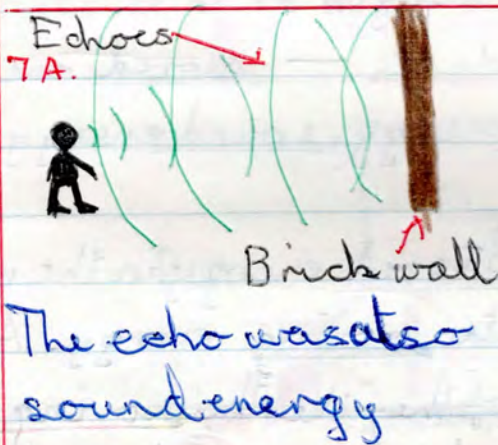 Echoes
7A.
Brick wall
The echo was also
sound energy